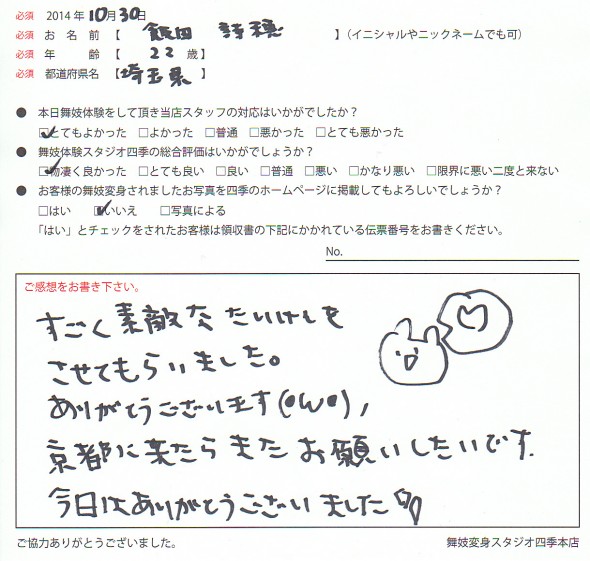 必須 2014年10月30日
必須 お名前【 飯田 詩穂 】(イニシャルやニックネームでも可)
必須 年齢【 22 歳】
必須 都道府県名【埼玉県】
● 本日舞妓体験をして頂き当店スタッフの対応はいかがでしたか？
☑とてもよかった □よかった □普通 □悪かった □とても悪かった
● 舞妓体験スタジオ四季の総合評価はいかがでしょうか？
☑物凄く良かった □とても良い □良い □普通 □悪い □かなり悪い □限界に悪い二度と来ない
● お客様の舞妓変身されましたお写真を四季のホームページに掲載してもよろしいでしょうか？
□はい ☑いいえ □写真による
「はい」とチェックをされたお客様は領収書の下記にかかれている伝票番号をお書きください。
No.
ご感想をお書き下さい。
すごく素敵なたいけんを
させてもらいました。
ありがとうございます(•ω•)，
京都に来たらまたお願いしたいです.
今日はありがとうございました♡
ご協力ありがとうございました。
舞妓変身スタジオ四季本店